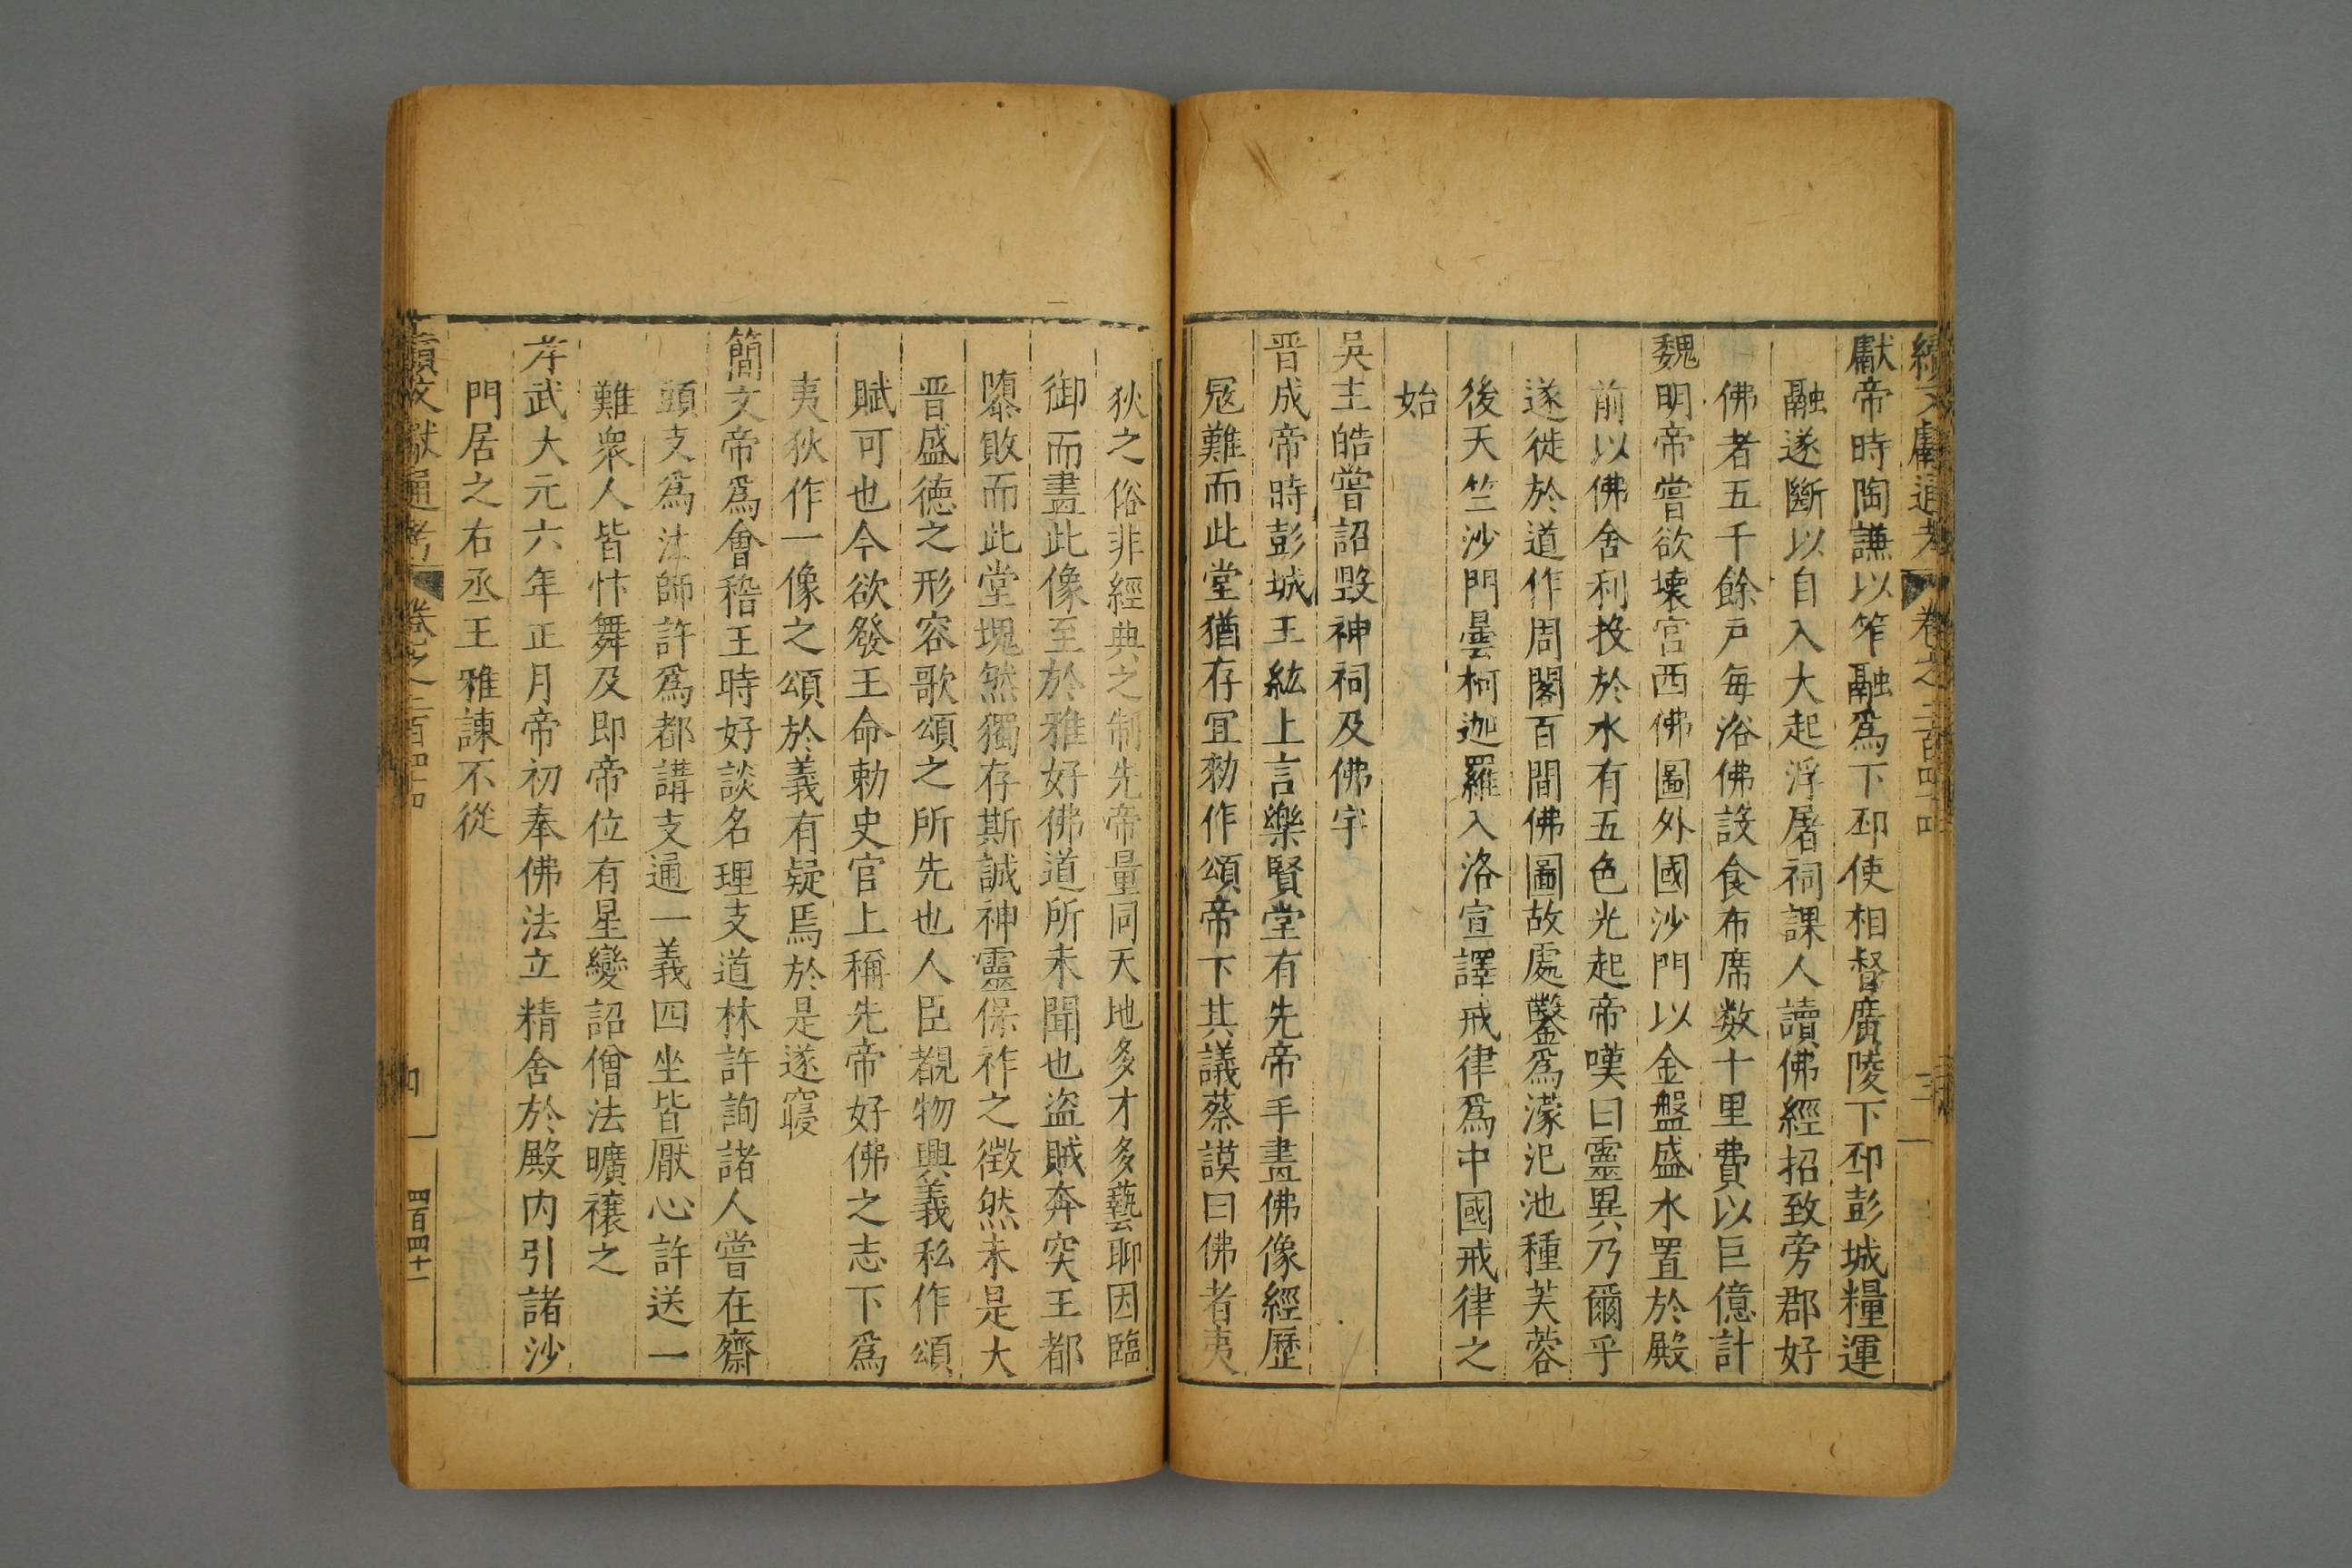 續文獻通考 卷之二百四十四 三
獻帝時陶謙以笮融爲下邳使相督廣陵下邳彭城糧運
融遂斷以自入大起浮屠祠課人讀佛經招致旁郡好
佛者五千餘戶每浴佛設食布席数十里費以巨億計
魏明帝嘗欲壊宫西佛圖外國沙門以金盤盛水置於殿
前以佛舍利投於水有五色光起帝嘆曰靈異乃爾乎
遂徙於道作周閣百間佛圖故處鑿爲濛汜池種芙蓉
後天竺沙門曇柯迦羅入洛宣譯戒律爲中國戒律之
始
吳主皓嘗詔毀神祠及佛宇
晋成帝時彭城王紘上言樂賢堂有先帝手畫佛像經歷
冦難而此堂猶存宜勑作頌帝下其議蔡謨曰佛者夷
狄之俗非經典之制先帝量同天地多才多藝聊因臨
御而畫此像至於雅好佛道所未聞也盗賊奔突王都
隳敗而此堂塊然獨存斯誠神靈保祚之徵然未是大
晋盛德之形容歌頌之所先也人臣覩物興義私作頌
賦可也今欲發王命勅史官上稱先帝好佛之志下爲
夷狄作一像之頌於義有疑焉於是遂寢
簡文帝爲會稽王時好談名理支道林許詢諸人嘗在齋
頭支爲法師許爲都講支通一義四坐皆厭心許送一
難衆人皆忭舞及即帝位有星變詔僧法曠禳之
孝武大元六年正月帝初奉佛法立精舍於殿内引諸沙
門居之右丞王雅諫不從
續文獻通考 卷之二百四十四 四 四百四十一